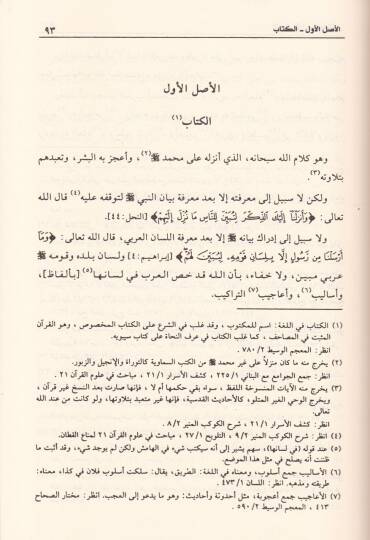 الأصل الأول ــ الكتاب
٩٣
الأصل الأول
الكتاب(١)
وهو كلام الله سبحانه، الذي أنزله على محمد ﷺ(٢)، وأعجز به البشر، وتعبدهم
بتلاوته(٣).
ولكن لا سبيل إلى معرفته إلا بعد معرفة بيان النبي ﷺ لتوقفه عليه(٤) قال الله
تعالى: ﴿وَأَنزَلْنَا إِلَيْكَ الذِّكْرَ لِتُبَيِّنَ لِلنَّاسِ مَا نُزِّلَ إِلَيْهِمْ﴾ [النحل: ٤٤].
ولا سبيل إلى إدراك بيانه ﷺ إلا بعد معرفة اللسان العربي، قال الله تعالى: ﴿وَمَا
أَرْسَلْنَا مِن رَّسُولٍ إِلَّا بِلِسَانِ قَوْمِهِ لِيُبَيِّنَ لَهُمْ﴾ [إبراهيم: ٤] ولسان بلده وقومه ﷺ
عربي مبين، ولا خفاء، بأن الله قد خص العرب في لسانها(٥) [بألفاظ]،
وأساليب(٦)، وأعاجيب(٧) التراكيب.
(١) الكتاب في اللغة: اسم للمكتوب، وقد غلب في الشرع على الكتاب المخصوص، وهو القرآن
المثبت في المصاحف، كما غلب الكتاب في عرف النحاة على كتاب سيبويه.
انظر: المعجم الوسيط ٧٨٠/٢.
(٢) يخرج منه ما كان منزلاً على غير محمد ﷺ من الكتب السماوية كالتوراة والإنجيل والزبور.
انظر: جمع الجوامع مع البناني ٢٢٥/١، كشف الأسرار ٢١/١، مباحث في علوم القرآن ٢١.
(٣) يخرج منه الآيات المنسوخة اللفظ، سواء بقي حكمها أم لا، فإنها صارت بعد النسخ غير قرآن،
ويخرج الوحي الغير المتلو؛ كالأحاديث القدسية، فإنها غير متعبد بتلاوتها، ولو كانت من عند الله
تعالى.
انظر: كشف الأسرار ٢١/١، شرح الكوكب المنير ٨/٢.
(٤) انظر: شرح الكوكب المنير ٩/٢، التلويح ٢٧/١، مباحث في علوم القرآن ٢١ لمناع القطان.
(٥) عند قوله (في لسانها)، سهم يشير إلى أنه سيكتب شيء في الهامش ولكن لم يوجد شيء، وقد أثبت ما
ظننت أنه يصلح في مثل هذا الموضع.
(٦) الأساليب جمع أسلوب، ومعناه في اللغة: الطريق، يقال: سلكت أسلوب فلان في كذا، معناه:
طريقته ومذهبه. انظر: اللسان ٤٧٣/١.
(٧) الأعاجيب جمع أعجوبة، مثل أحدوثة وأحاديث: وهو ما يدعو إلى العجب. انظر: مختار الصحاح
٤١٣، المعجم الوسيط ٥٩٠/٢.